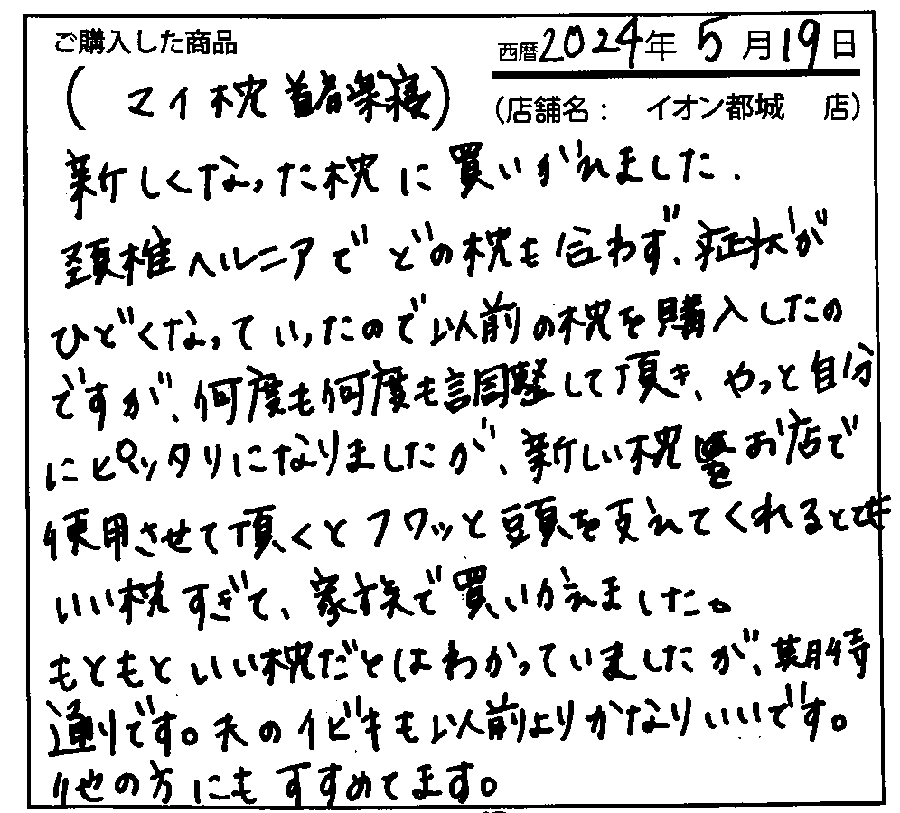 ご購入した商品
西暦2024年 5月19日
(マイ枕 首楽寝)
(店舗名: イオン都城 店)
新しくなった枕に買いがえました.
頚椎ヘルニアでどの枕も合わず、症状が
ひどくなっていったので以前の枕を購入したの
ですが、何度も何度も調整して頂き、やっと自分
にピッタリになりましたが、新しい枕をお店で
使用させて頂くとフワッと頭を支えてくれるとても
いい枕すぎて、家族で買いがえました。
もともといい枕だとはわかっていましたが、期待
通りです。夫のイビキも以前よりかなりいいです。
他の方にもすすめてます。